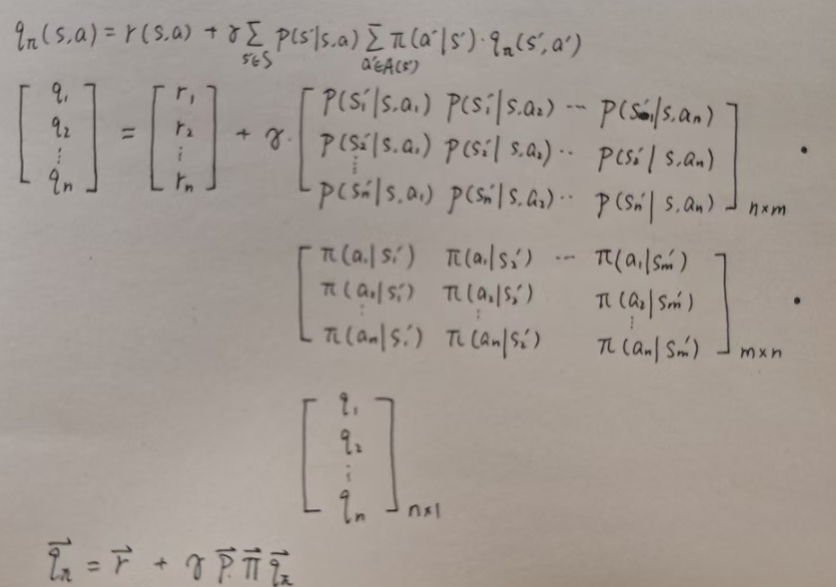 qπ(s,a) = r(s,a) + γ Σ_{s'∈S} p(s'|s,a) Σ_{a'∈A(s')} π(a'|s')·qπ(s',a')
[q₁ q₂ ⋮ qn] = [r₁ r₂ ⋮ rn] + γ·
[p(s₁'|s,a₁) p(s₁'|s,a₂) ⋯ p(s₁'|s,an)
p(s₂'|s,a₁) p(s₂'|s,a₂) ·· p(s₂'|s,an)
⋮
p(sn'|s,a₁) p(sn'|s,a₂) ·· p(sn'|s,an)] n×m ·
[π(a₁|s₁') π(a₁|s₂') ⋯ π(a₁|sm')
π(a₂|s₁') π(a₂|s₂') π(a₂|sm')
⋮ ⋮ ⋮
π(an|s₁') π(an|s₂') π(an|sm')] m×n ·
[q₁
q₂
⋮
qn] n×1
q⃗π = r⃗ + γ P⃗ Π⃗ q⃗π